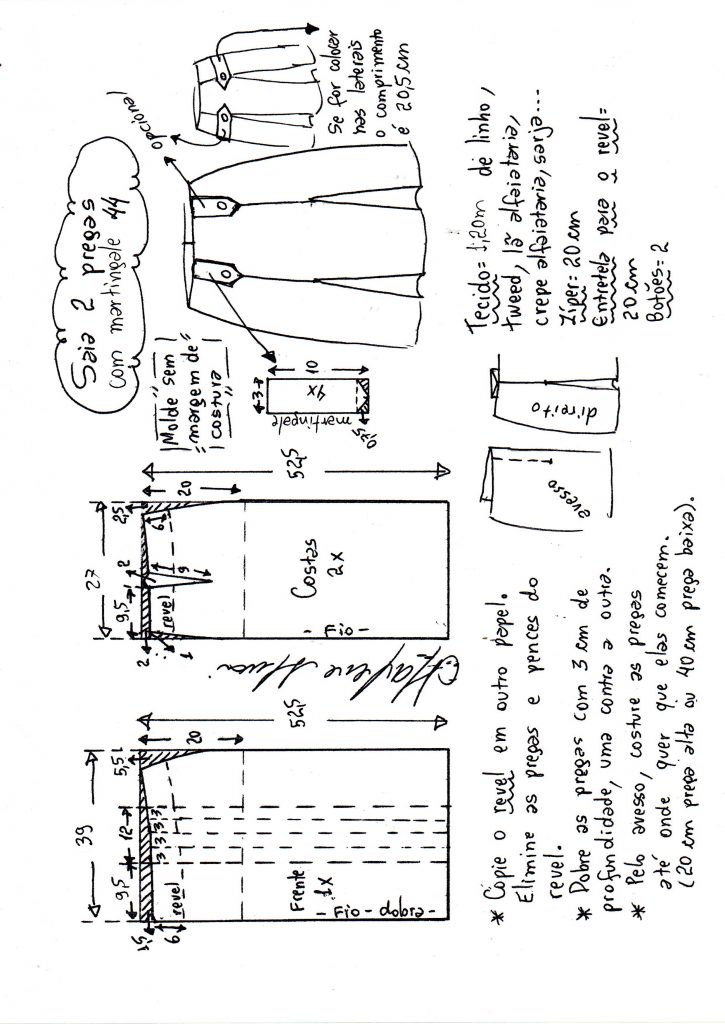 Saia 2 pregas
com martingale 44
opcional
Se for colocar
nas laterais
o comprimento
é 20,5 cm
"Molde sem"
margem de
"costura"
martingale
3
10
4x
0,75
39
9,5
12
5,5
3 3 3 3
1,5
6
revel
20
52,5
Frente
1x
- Fio - dobra -
27
9,5
2
2,5
2
1
9
6
revel
20
52,5
Costas
2x
- Fio -
Marlene Mukai
avesso
direito
Tecido= 1,20m de linho,
tweed, lã alfaiataria,
crepe alfaiataria, sarja...
Zíper: 20 cm
Entretela para o revel=
20 cm
Botões= 2
* Copie o revel em outro papel.
Elimine as pregas e pences do
revel.
* Dobre as pregas com 3 cm de
profundidade, uma contra a outra.
* Pelo avesso, costure as pregas
até onde quer que elas comecem.
(20 cm prega alta ou 40 cm prega baixa).